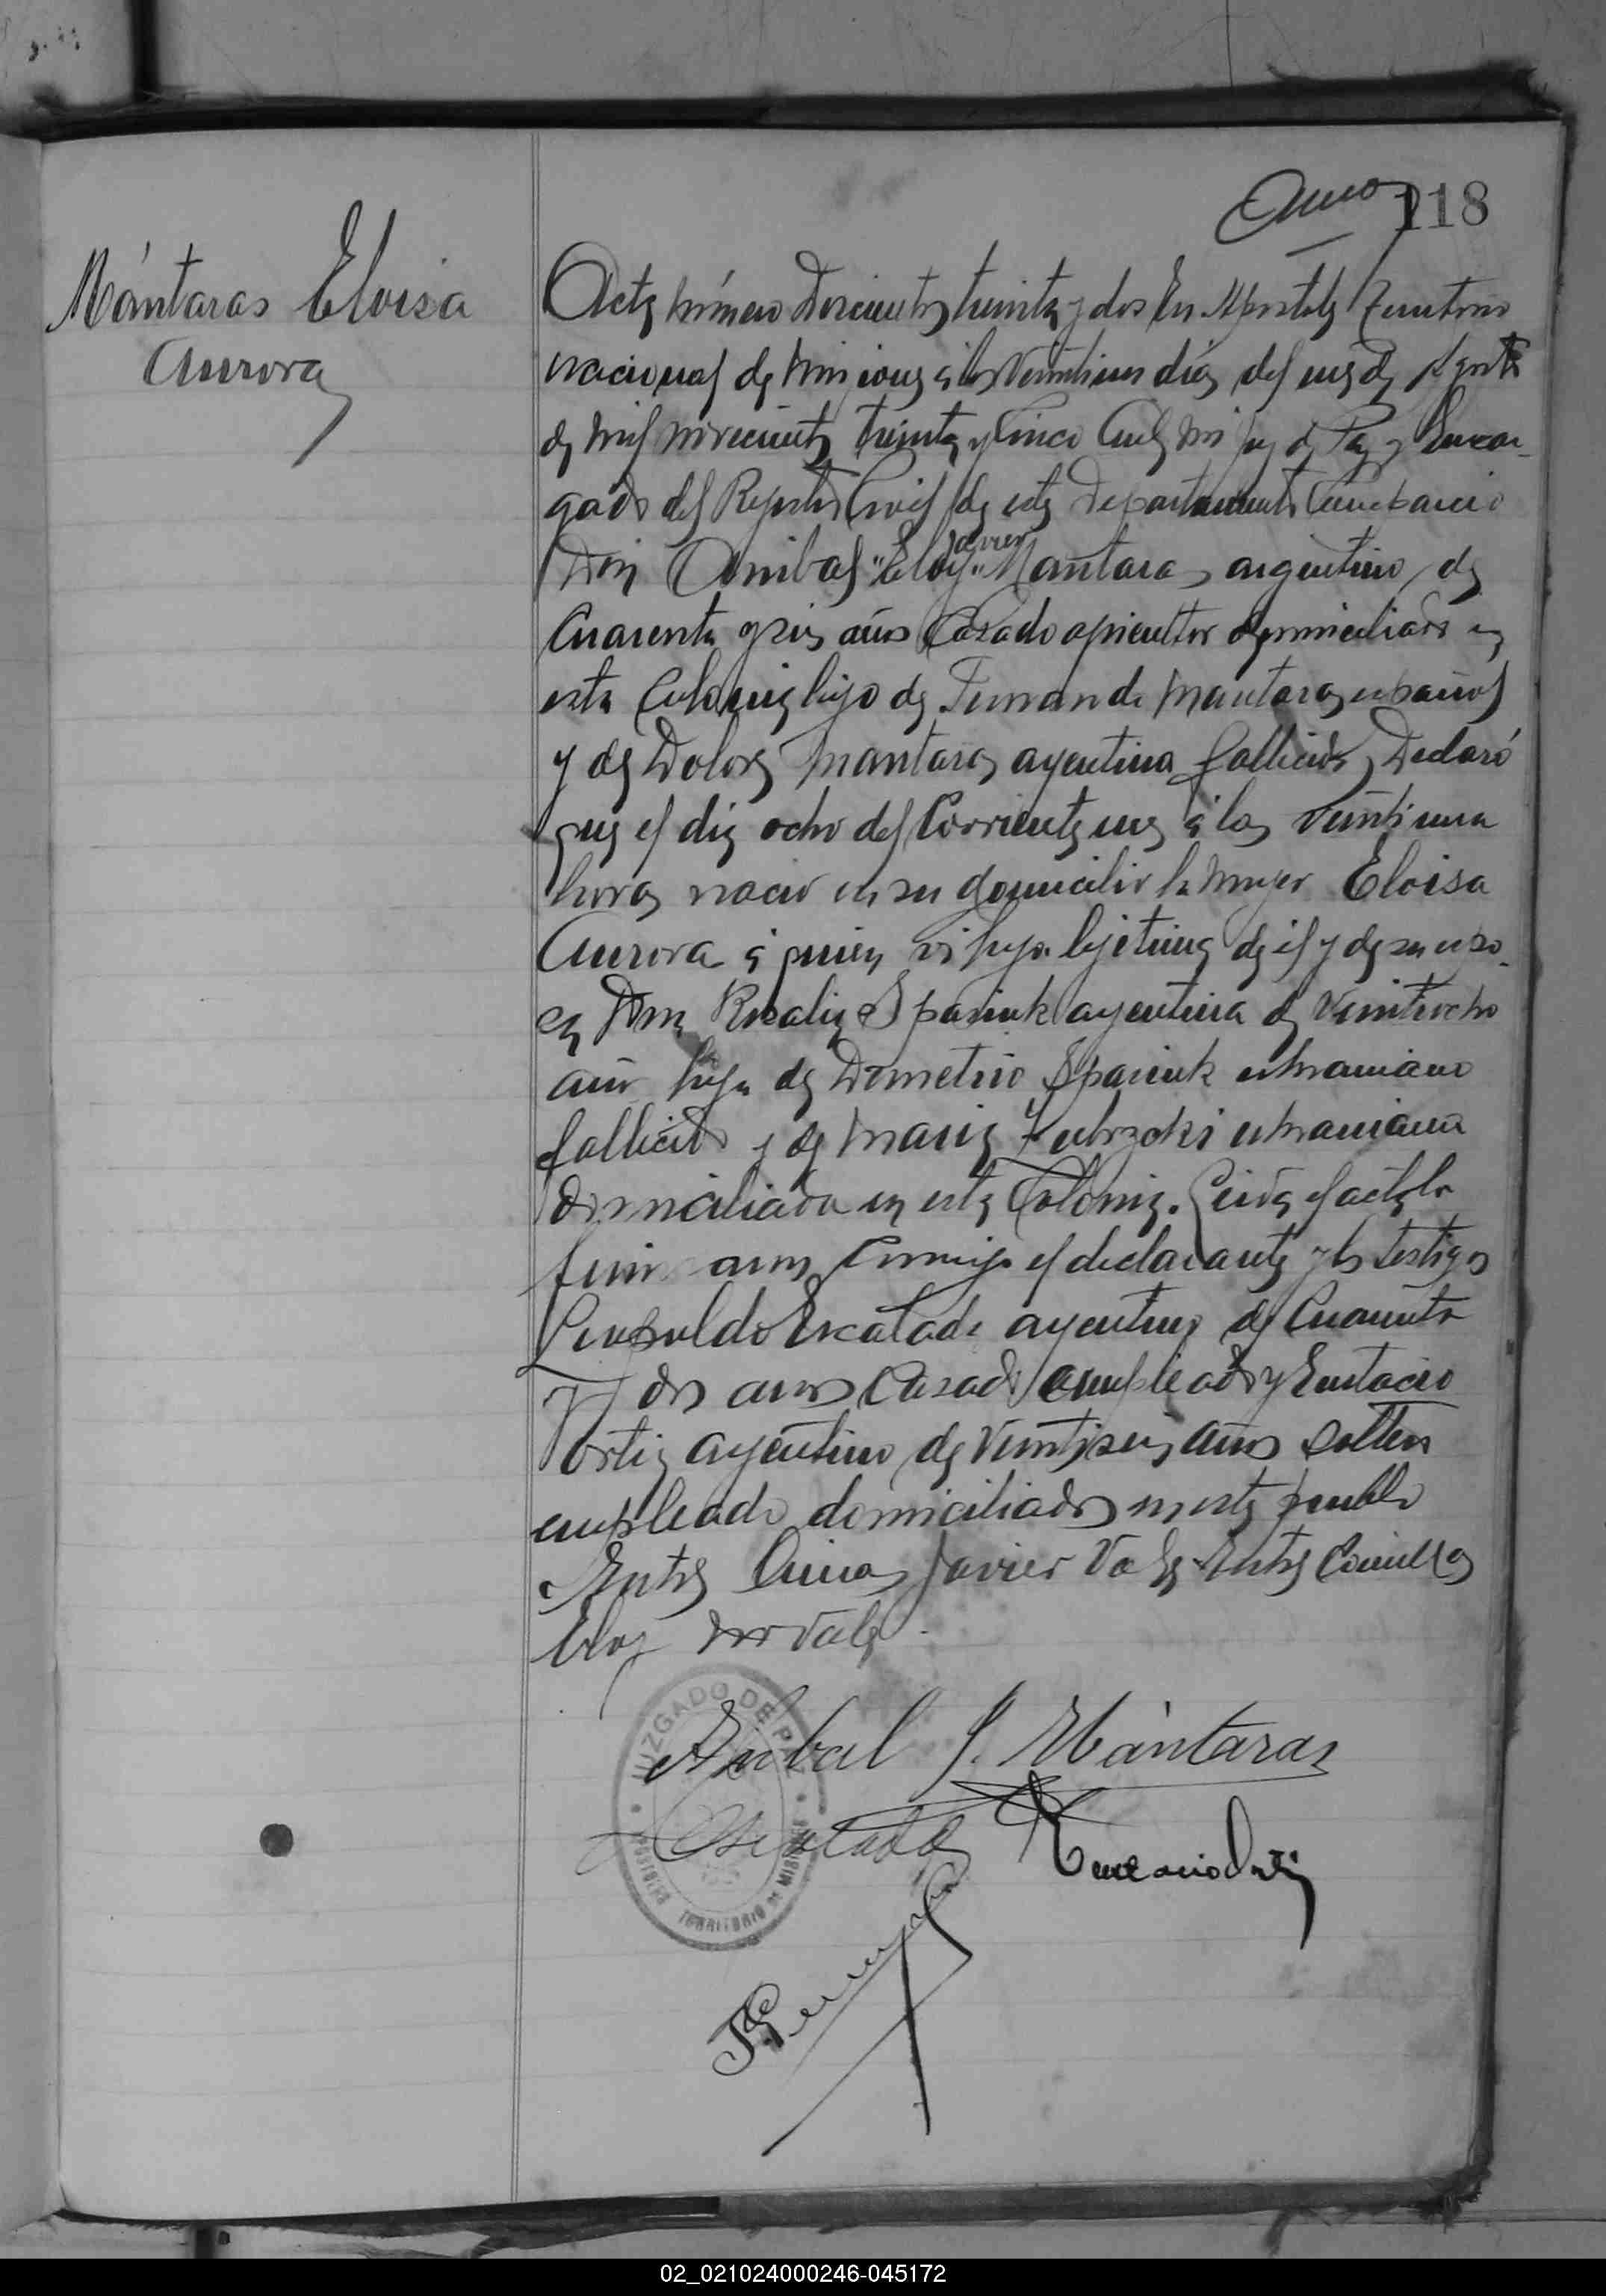 118
Mántaras Eloisa
Aurora
Acta número Doscientos treinta y dos En Apostoles Territorio
nacional de Misiones á los Veintiun dias del mes de Agosto
de mil novecientos treinta y Cinco Ante mi Juez de Paz y Encar-
gado del Registro Civil de este Departamento Comparecio
Javier
Don Anibal "Eloy" Mantaras argentino de
Cuarenta y seis años Casado apicultor domiciliado en
esta Colonia hijo de Fernando Mantaras español
y de Dolores Mantaras argentina fallecidos Declaró
que el dia ocho del Corriente mes á las veintiuna
horas nacio en su domicilio la mujer Eloisa
Aurora á quien hija lejitima de el y de su espo-
sa Doña Rosalia Spasiuk argentina de Veintiocho
años hija de Demetrio Spasiuk ukraniano
fallecido y de Maria ukraniana
domiciliada en esta Colonia. Leida el acta la
firmaron Conmigo el declarante y los testigos
Leopoldo Escalada argentino de Cuarenta
y dos años Casado empleado y Eustacio
Ortiz argentino de Veintiseis años soltero
empleado domiciliados en este pueblo
Entre lineas Javier Vale Entre Comillas
Eloy no vale.
JUZGADO DE PAZ
APOSTOLES TERRITORIO DE MISIONES
Anibal J. Mántaras
Escalada
Eustacio Ortiz
02_021024000246-045172